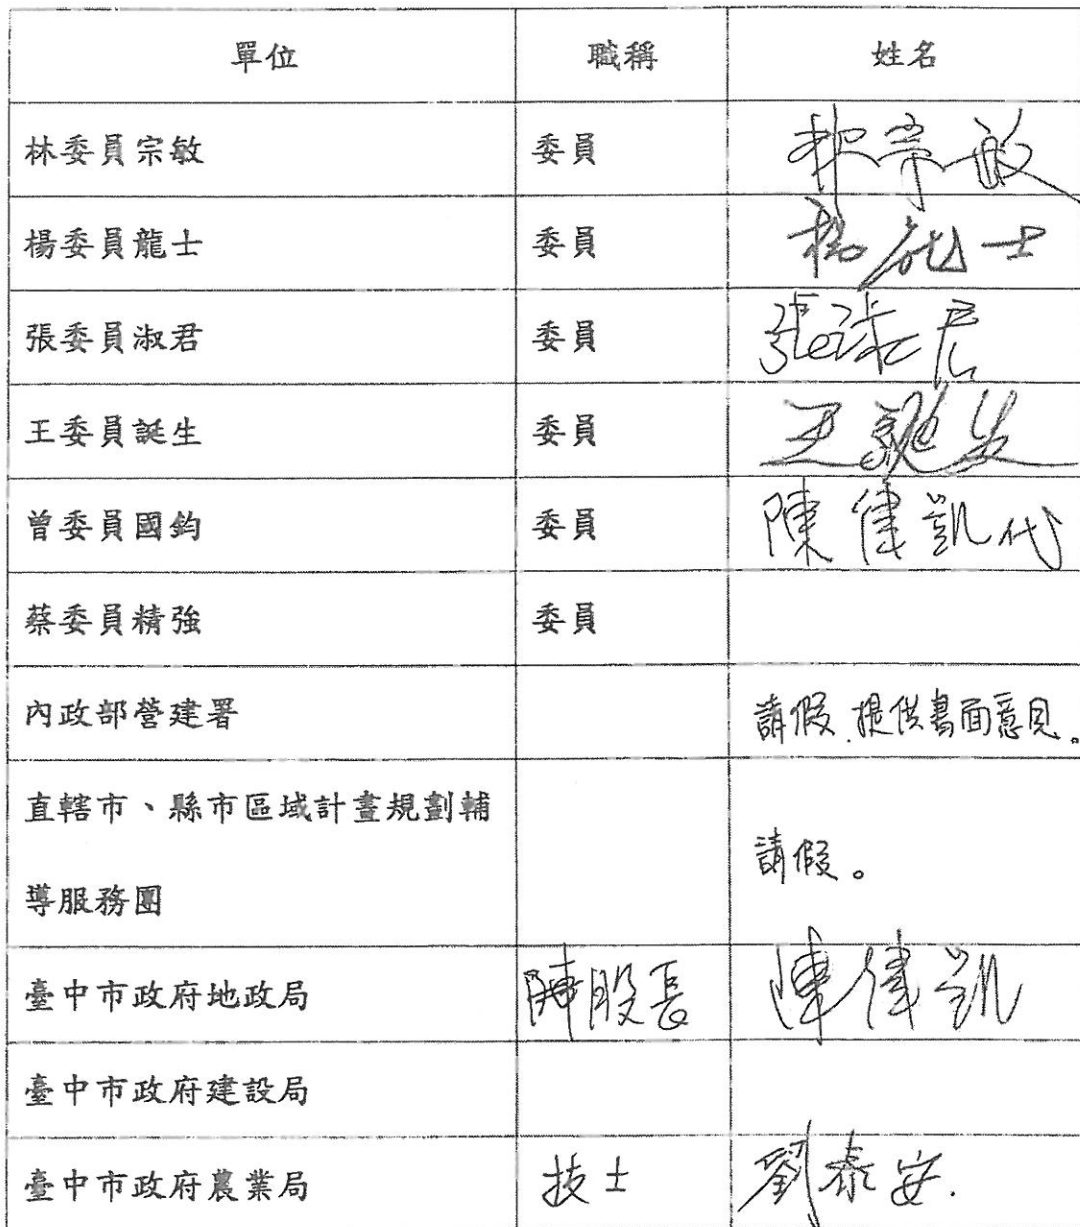 單位 職稱 姓名
林委員宗敏 委員 林宗敏
楊委員龍士 委員 楊龍士
張委員淑君 委員 張淑君
王委員誕生 委員 王誕生
曾委員國鈞 委員 陳偉凱代
蔡委員精強 委員
內政部營建署 請假.提供書面意見。
直轄市、縣市區域計畫規劃輔
導服務團 請假。
臺中市政府地政局 陳股長 陳偉凱
臺中市政府建設局
臺中市政府農業局 技士 劉泰安.